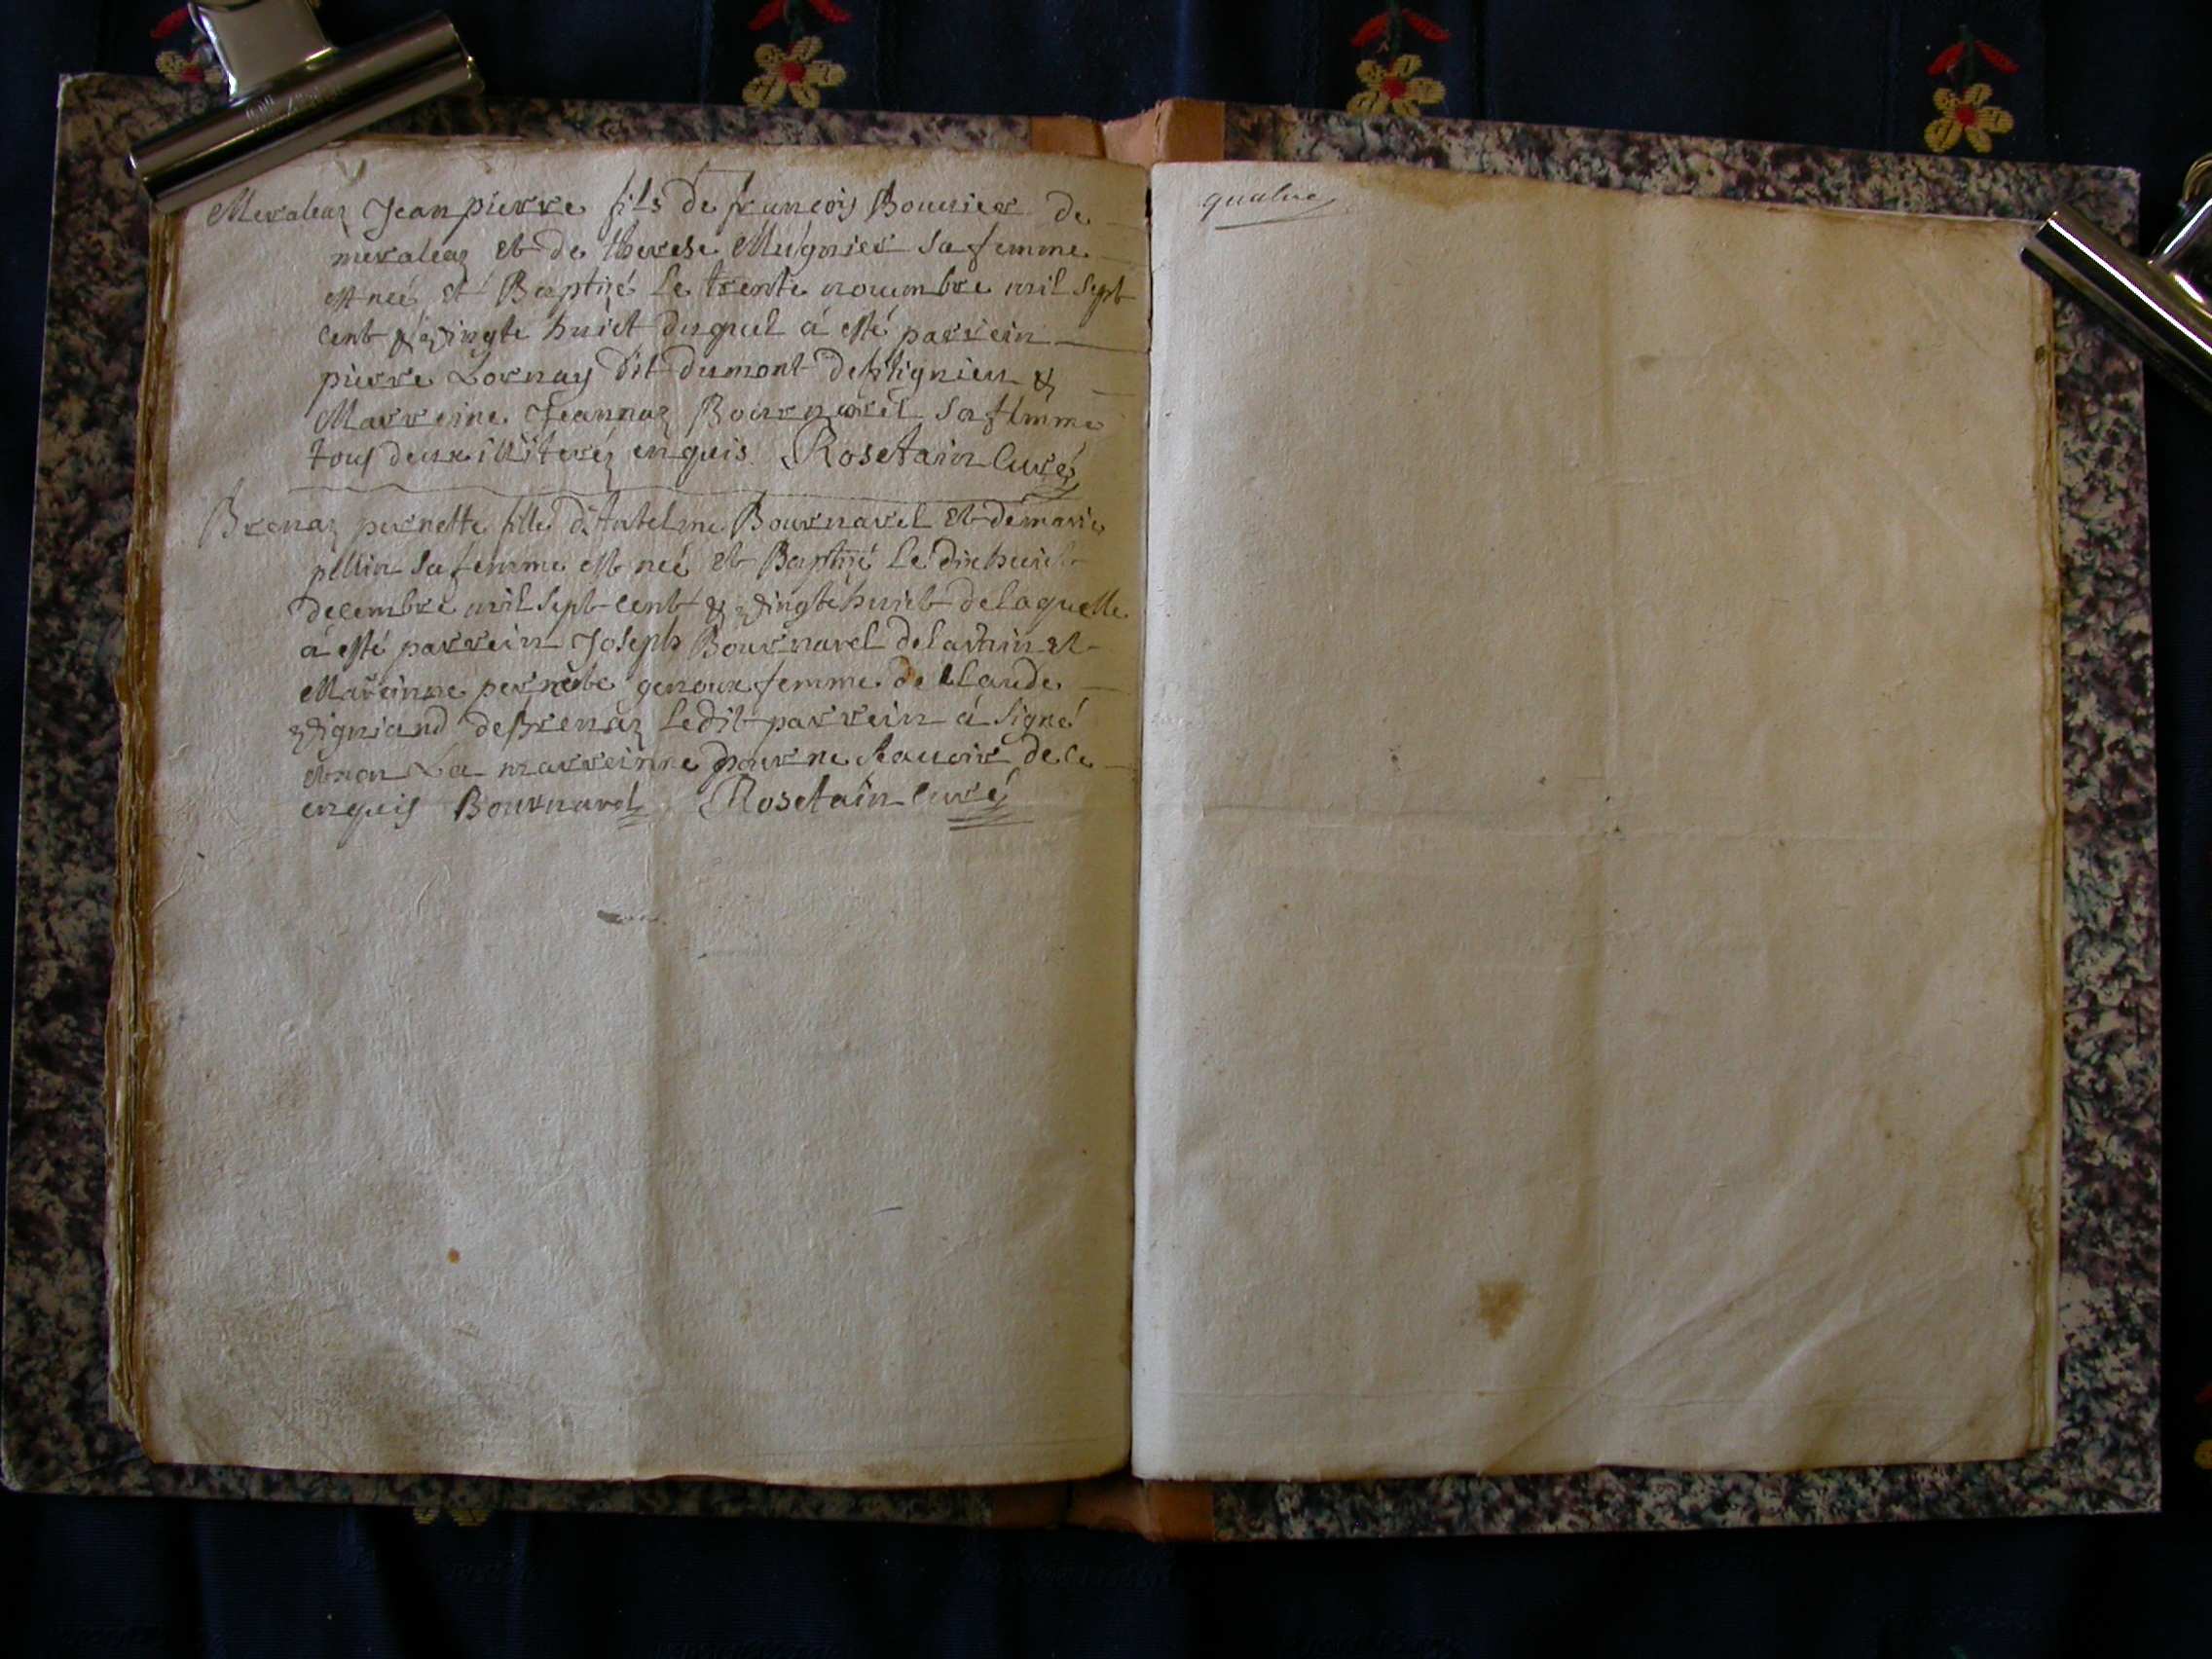 Meraleaz Jean pierre fils de francois Bouuier de
meraleaz et de therese Mugnier sa femme
est neé et Baptisé le trente nouembre mil sept
cent & vingte huict duquel á esté parrein
pierre Lornay dit dumont de &
Marreine Jeannaz Bournavel sa femme
tous deux illiteréz enquis Rosetain Curé
Brenaz pernette fille d'Antelme Bournavel et de marie
pellin sa femme est neé et Baptisé le dix huict
decembre mil sept cent & vingte huict de laquelle
á esté parrein Joseph Bournavel de et
Mareinne pernete genoux femme de Claude
vigniand de brenaz ledit parrein á signé
et non La marreinne pour ne scauoir de ce
enquis Bournavel Rosetain Curé
quatre